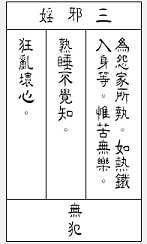 三邪婬
為怨家所執。如熱鐵
入身等。惟苦無樂。
熟睡不覺知。
狂亂壞心。
無犯